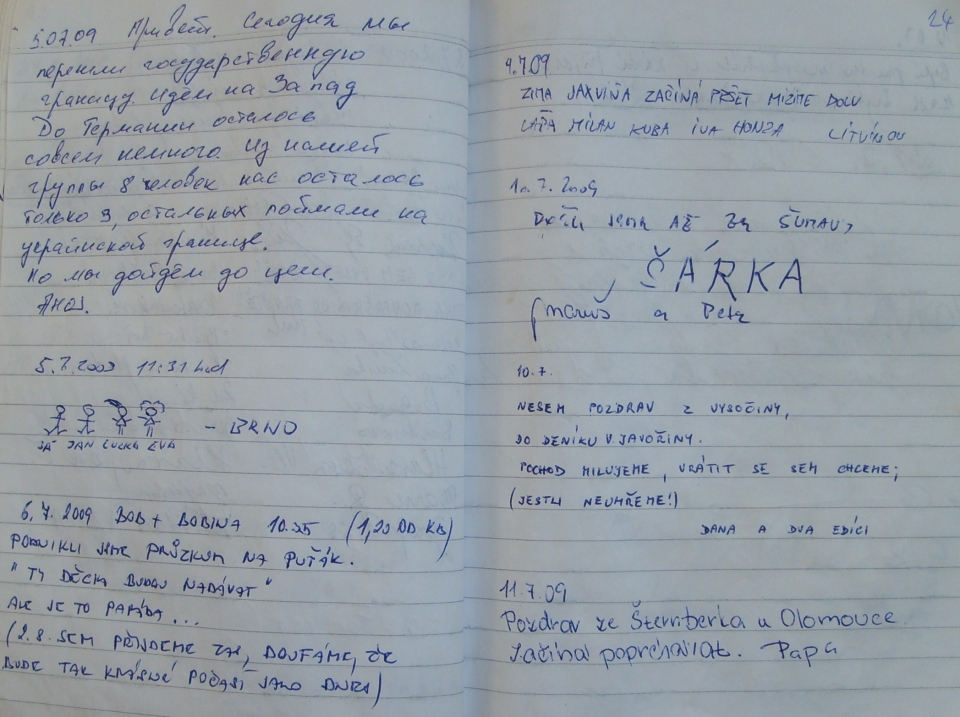 5.07.09 Привет. Сегодня мы
перешли государственную
границу. Идём на Запад
До Германии осталось
совсем немного. Из нашей
группы 8 человек нас осталось
только 3, остальных поймали на
украинской границе.
Но мы дойдём до цели.
5.7.2009 11:31 hod
JÁ JAN LUCKA EVA - BRNO
6.7. 2009 BOB + BOBINA 10.35 (1,20 OD KB)
PODNIKLI JSME PRŮZKUM NA PUŤÁK.
"TY DĚCKA BUDOU NADÁVAT"
ALE JE TO PARÁDA...
(2.8. SEM PŘIJDEME ZAS, DOUFÁME, ŽE
BUDE TAK KRÁSNÉ POČASÍ JAKO DNES)
24
9.7.09
ZIMA JAKVIŇA ZAČÍNÁ PRŠET MIZÍME DOLU
LÁĎA MILAN KUBA IVA HONZA LITVÍNOV
10.7.2009
Došli jsme AŽ ZE ŠUMAVY
ŠÁRKA
a Petr
10.7.
NESEM POZDRAV Z VYSOČINY,
DO DENÍKU V JAVOŘINY.
POCHOD MILUJEME, VRÁTIT SE SEM CHCEME;
(JESTLI NEUMŘEME!)
DANA A DVA EDÍCI
11.7.09
Pozdrav ze Šternberka u Olomouce.
Začíná poprchávat. Papa